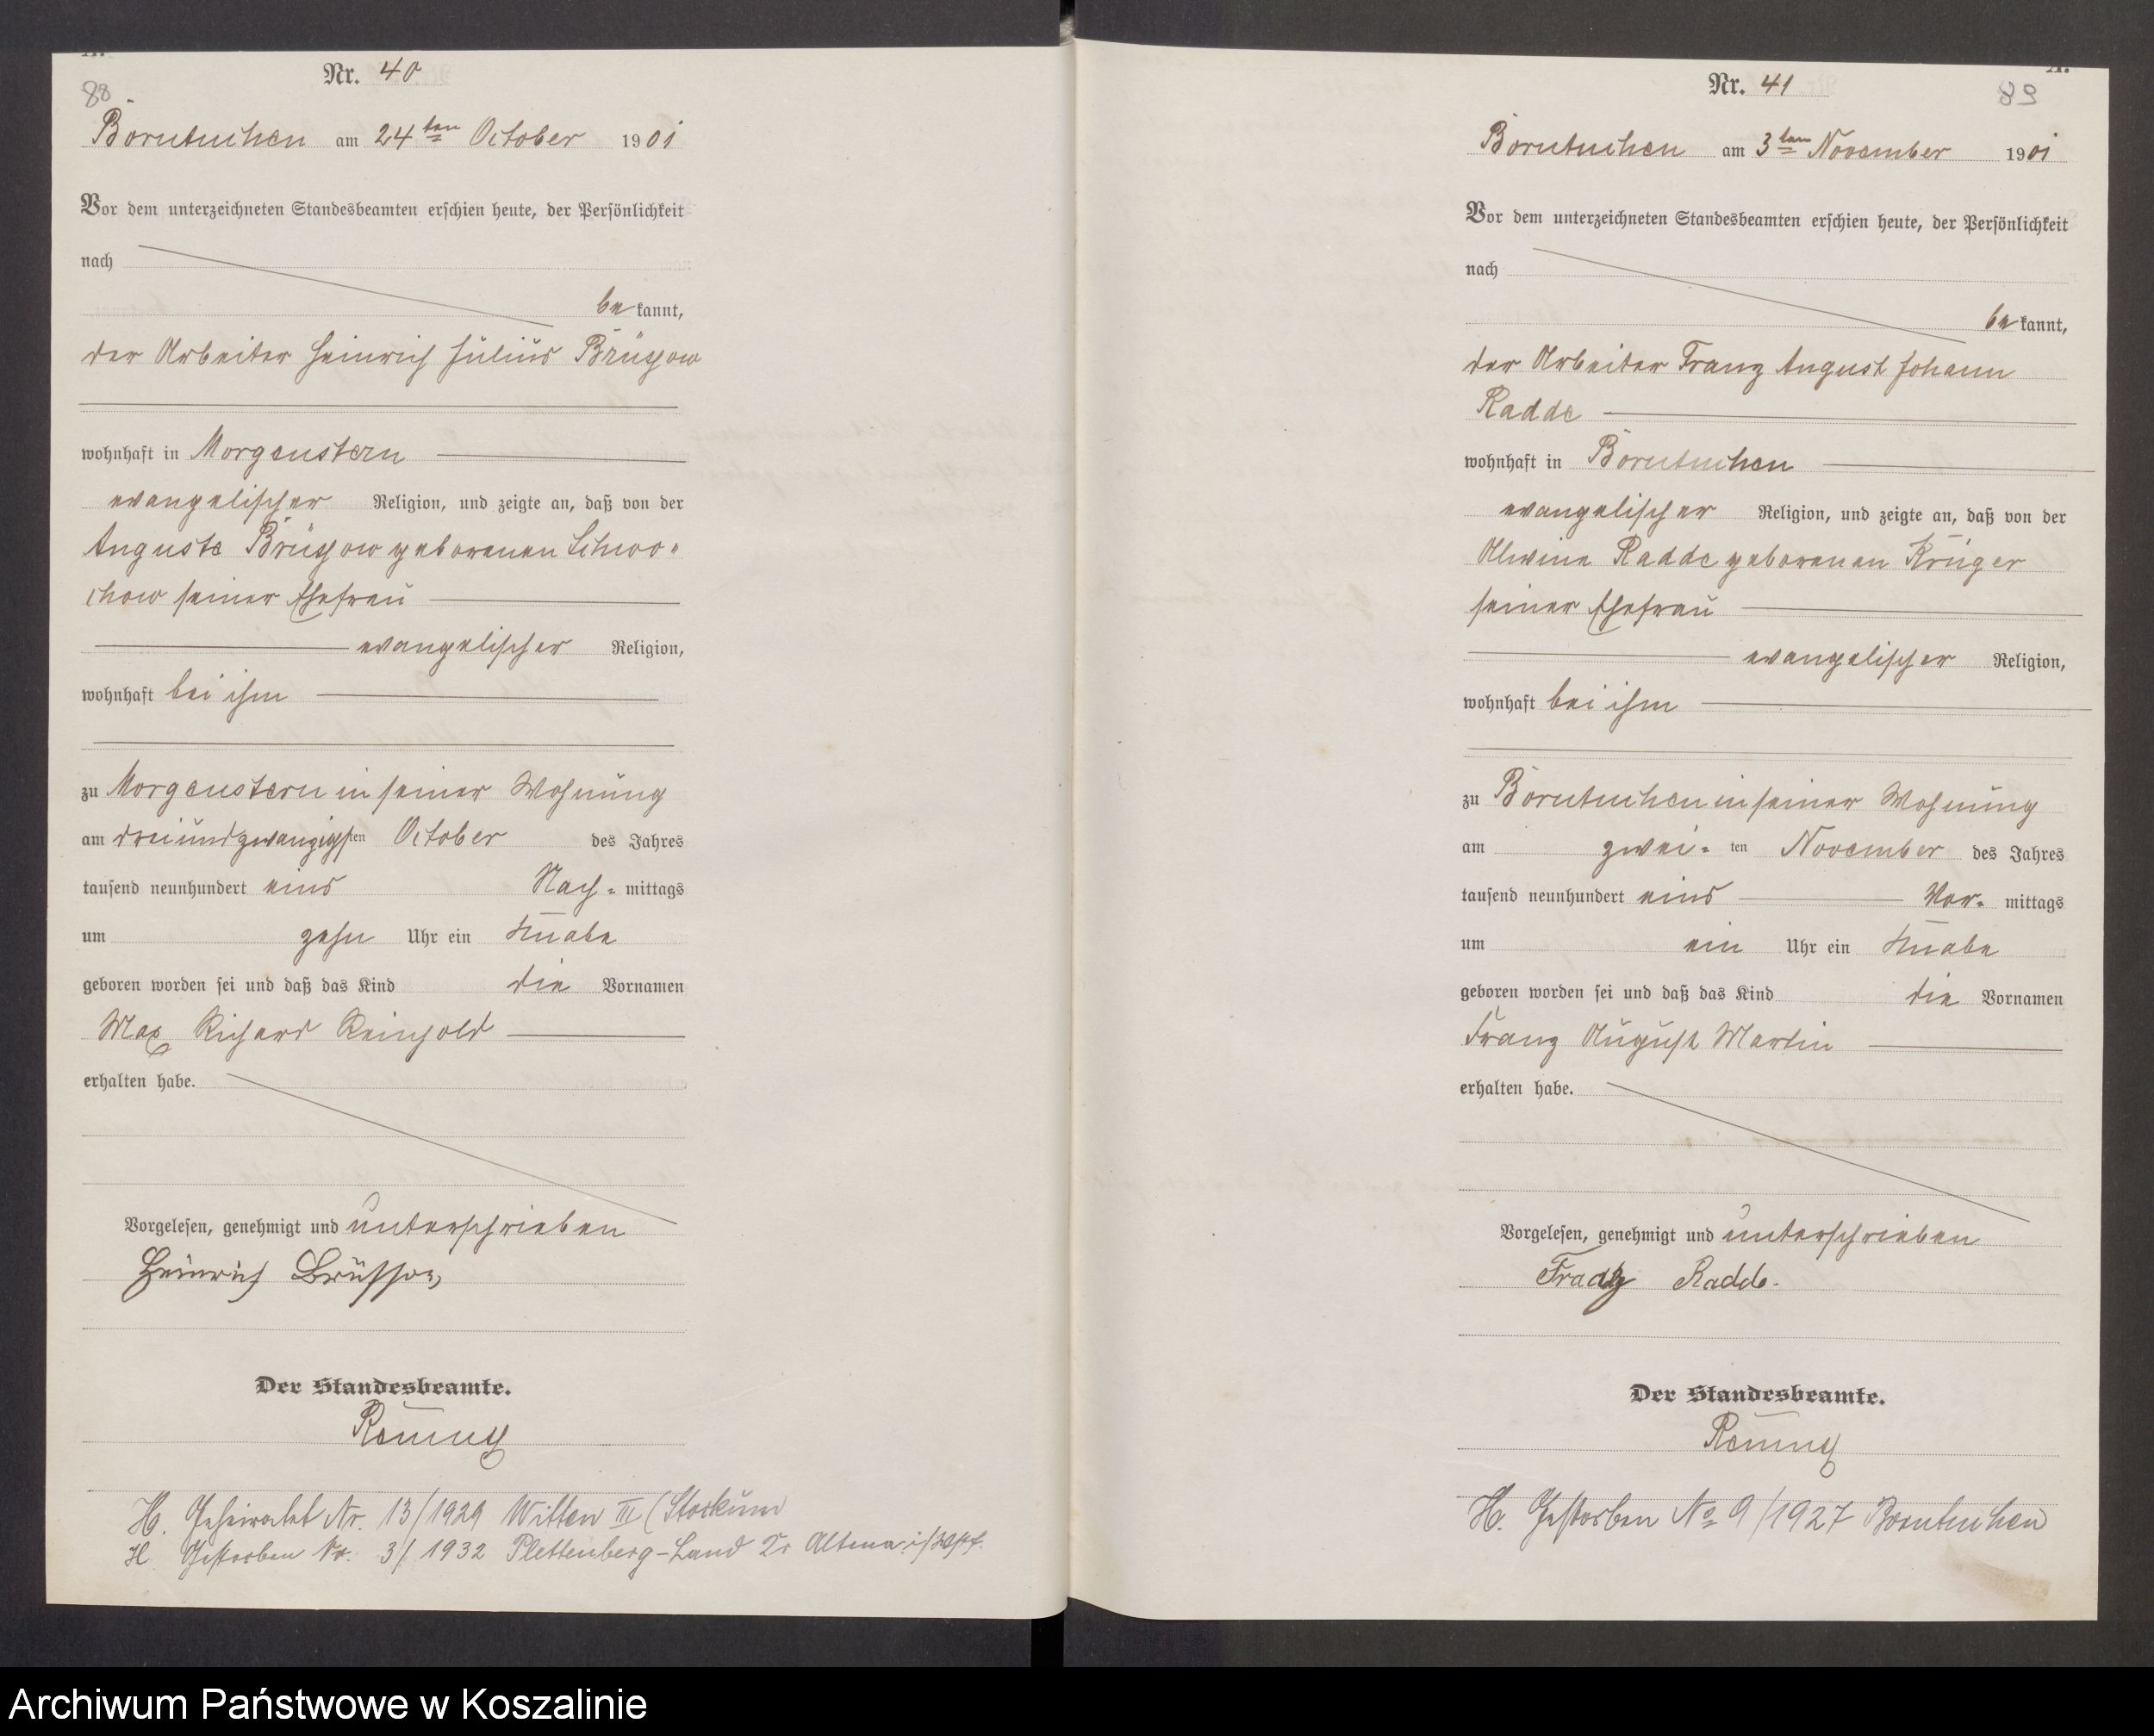 Nr. 40
88
Borntuchen am 24ten October 1901
Vor dem unterzeichneten Standesbeamten erschien heute, der Persönlichkeit
nach
be kannt,
der Arbeiter Heinrich Julius Brüssow
wohnhaft in Morgenstern
evangelischer Religion, und zeigte an, daß von der
Auguste Brüssow geborenen Schwo-
chow seiner Ehefrau
evangelischer Religion,
wohnhaft bei ihm
zu Morgenstern in seiner Wohnung
am dreiundzwanzigsten October des Jahres
tausend neunhundert eins Nach- mittags
um zehn Uhr ein Knabe
geboren worden sei und daß das Kind die Vornamen
Max Richard Reinhold
erhalten habe.
Vorgelesen, genehmigt und unterschrieben
Heinrich Brüssow
Der Standesbeamte.
H. Geheiratet Nr. 13/1929 Witten III (Stockum
H. Gestorben Nr. 3/1932 Plettenberg-Land Kr Altena i/Westf.
Nr. 41
89
Borntuchen am 3ten November 1901
Vor dem unterzeichneten Standesbeamten erschien heute, der Persönlichkeit
nach
be kannt,
der Arbeiter Franz August Johann
Radde
wohnhaft in Borntuchen
evangelischer Religion, und zeigte an, daß von der
Alwine Radde geborenen Krüger
seiner Ehefrau
evangelischer Religion,
wohnhaft bei ihm
zu Borntuchen in seiner Wohnung
am zwei- ten November des Jahres
tausend neunhundert eins Vor- mittags
um ein Uhr ein Knabe
geboren worden sei und daß das Kind die Vornamen
Franz August Martin
erhalten habe.
Vorgelesen, genehmigt und unterschrieben
Franz Radde.
Der Standesbeamte.
H. Gestorben No 9/1927 Borntuchen
Archiwum Państwowe w Koszalinie